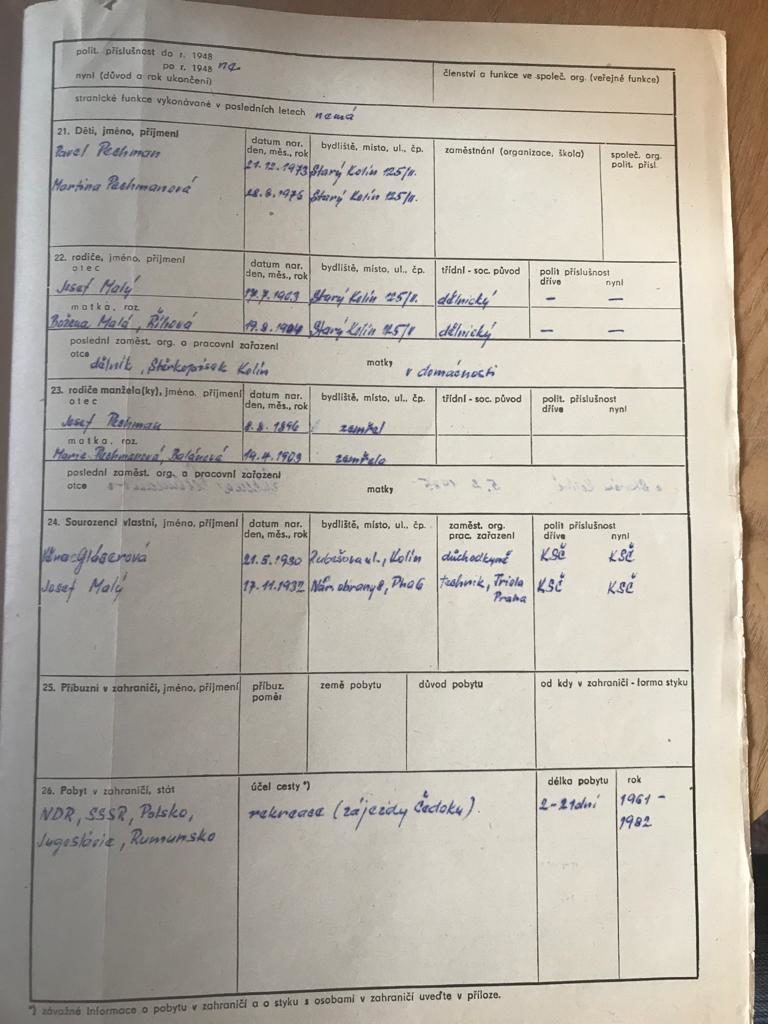 polit. příslušnost do r. 1948
po r. 1948 ne
nyní (důvod a rok ukončení)
členství a funkce ve společ. org. (veřejné funkce)
stranické funkce vykonávané v posledních letech nemá
21. Děti, jméno, příjmení datum nar. den, měs., rok bydliště, místo, ul., čp. zaměstnání (organizace, škola) společ. org. polit. přísl.
Pavel Pechman 21.12.1973 Starý Kolín 125/II.
Martina Pechmanová Starý Kolín 125/II.
22. rodiče, jméno, příjmení datum nar. den, měs., rok bydliště, místo, ul., čp. třídní - soc. původ polit příslušnost dříve nyní
otec
Josef Malý 17.7.1903 Starý Kolín 125/II. dělnický — —
matka, roz.
Božena Malá, Říhová 19.9.1904 Starý Kolín 125/II dělnický — —
poslední zaměst. org. a pracovní zařazení
otce dělník, Štěrkopísek Kolín matky v domácnosti
23. rodiče manžela(ky), jméno, příjmení datum nar. den, měs., rok bydliště, místo, ul., čp. třídní - soc. původ polit. příslušnost dříve nyní
otec
Josef Pechman 8.8.1896 zemřel
matka, roz.
Marie Pechmanová, Balánová 19.4.1903 zemřela
poslední zaměst. org. a pracovní zařazení
otce matky
24. Sourozenci vlastní, jméno, příjmení datum nar. den, měs., rok bydliště, místo, ul., čp. zaměst. org. prac. zařazení polit příslušnost dříve nyní
Gláserová 21.5.1930 Kolín důchodkyně KSČ KSČ
Josef Malý 17.11.1932 Nám obrany 8, Pha 6 technik, Triola Praha KSČ KSČ
25. Příbuzní v zahraničí, jméno, příjmení příbuz. poměr země pobytu důvod pobytu od kdy v zahraničí - forma styku
26. Pobyt v zahraničí, stát účel cesty *) délka pobytu rok
NDR, SSSR, Polsko, rekreace (zájezdy Čedoku). 2-21dní 1961 -
Jugoslávie, Rumunsko 1982
*) závažné informace o pobytu v zahraničí a o styku s osobami v zahraničí uveďte v příloze.